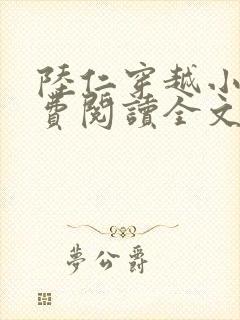 陸仁穿越小
費閱讀全文
夢公爵